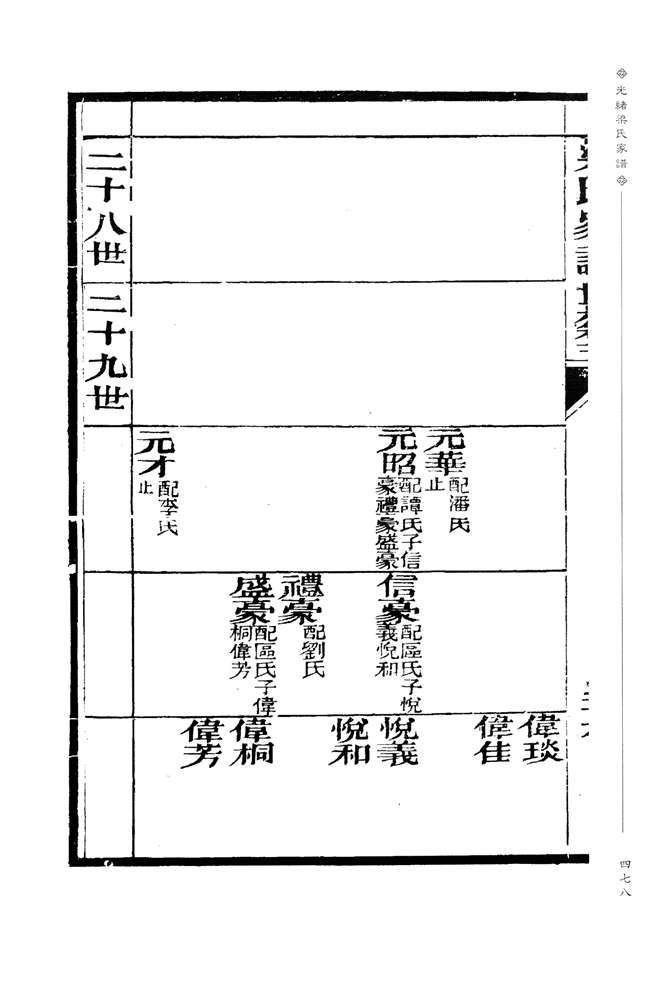 光緒梁氏家譜
四七八
氏家譜
元華
配潘氏
止
元昭
配譚氏子信
豪禮豪盛豪
元才
配李氏
止
信豪
配區氏子悅
義悅和
禮豪
配劉氏
盛豪
配區氏子偉
桐偉芳
偉琰
偉佳
悅義
悅和
偉桐
偉芳
二十八世
二十九世